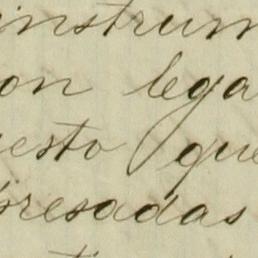 instrum
on lega
esto que
presadas